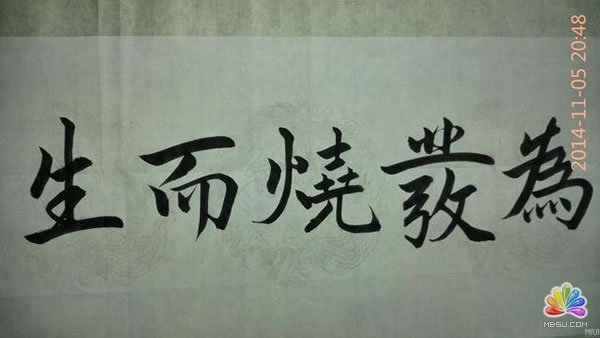 為發燒而生
2014-11-05 20:48
MBSU.COM
MIUI